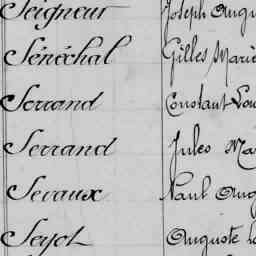 Seigneur Joseph Augu
Sénéchal Gilles Marie
Serrand Constant Lou
Serrand Jules Ma
Sevaux Paul Aug
Seyot Auguste